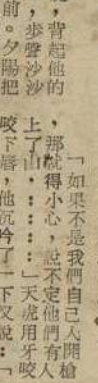 ，背起他的
，步聲沙沙
前。夕陽把
「如果不是我們自己人開槍
，那就得小心，說不定他們有人
上了山，……」天虎用牙咬
咬下唇，他沉吟了一下又說：「